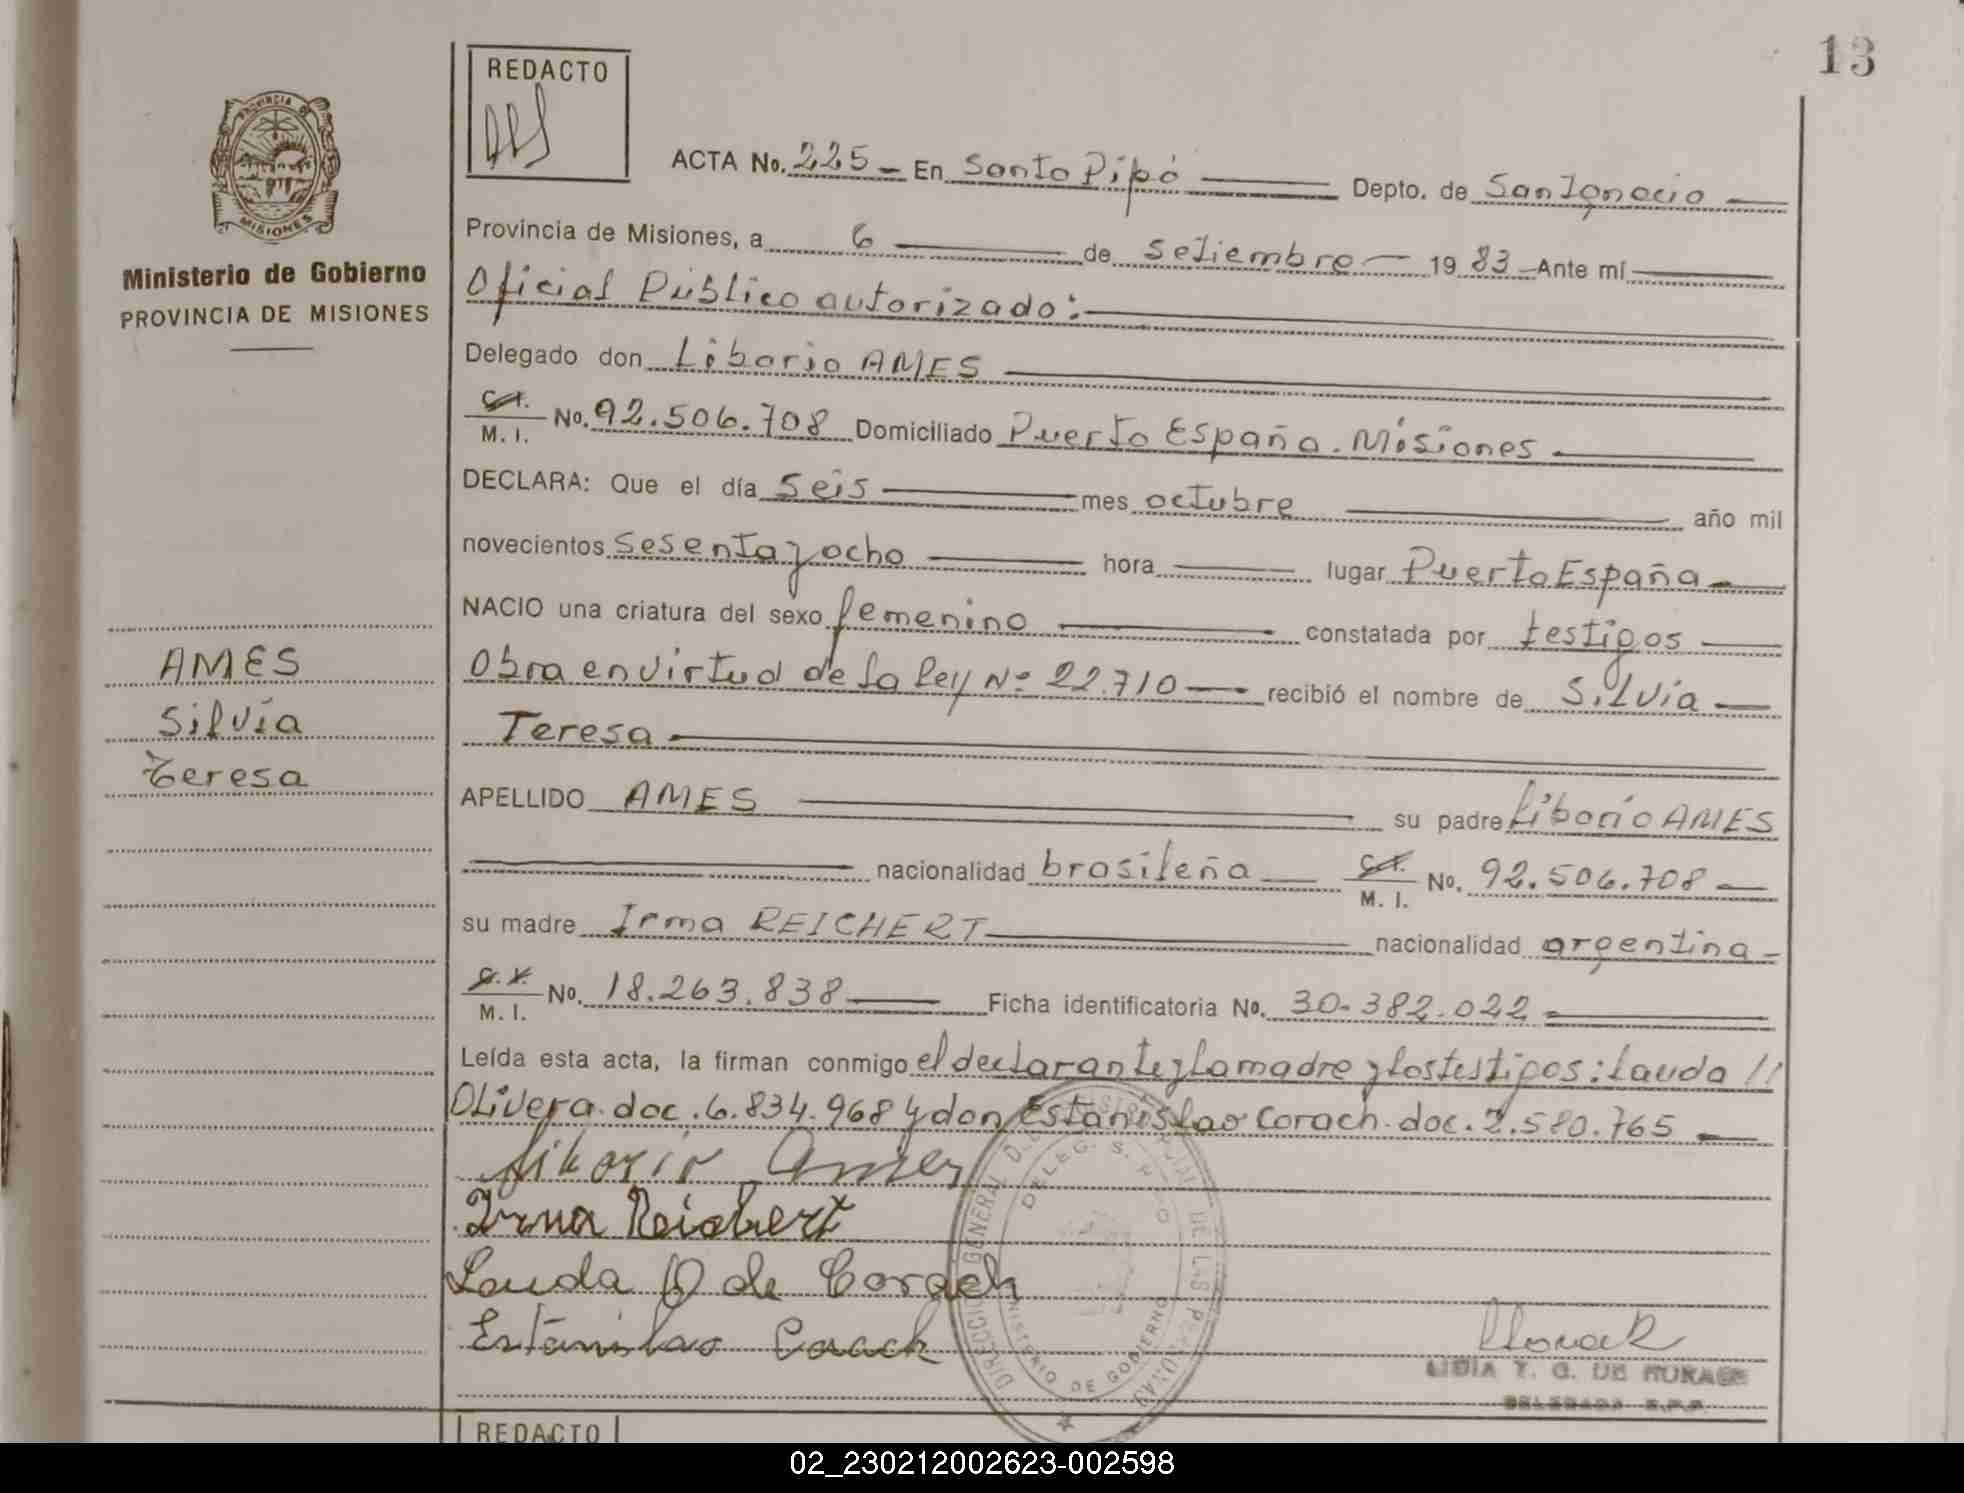 13
REDACTO
ACTA No. 225 - En Santo Pipó Depto. de San Ignacio
PROVINCIA DE MISIONES
Ministerio de Gobierno
PROVINCIA DE MISIONES
Provincia de Misiones, a 6 de Setiembre 19 83 Ante mí
Oficial Público autorizado:
Delegado don Liborio AMES
C.I. M. I. No. 92.506.708 Domiciliado Puerto España. Misiones
DECLARA: Que el día Seis mes octubre año mil
novecientos Sesenta y ocho hora lugar Puerto España
NACIO una criatura del sexo femenino constatada por testigos
Obra en virtud de la ley Nº 22.710 recibió el nombre de Silvia
Teresa
AMES
Silvia
Teresa
APELLIDO AMES su padre Liborio AMES
nacionalidad brasileña C.I. M. I. No. 92.506.708
su madre Irma REICHERT nacionalidad argentina
C.I. M. I. No. 18.263.838 Ficha identificatoria No. 30.382.022
Leída esta acta, la firman conmigo el declarante y la madre y los testigos: Lauda //
Olivera. doc. 6.834.968 y don Estanislao Corach. doc. 2.580.765
Liborio Ames
Irma Reichert
Lauda O de Corach
Estanislao Corach
DIRECCION GENERAL DE LAS PERSONAS
DELEG. S. PIPO
MINISTERIO DE GOBIERNO
LIDIA T. G. DE
DELEGADA
REDACTO
02_230212002623-002598